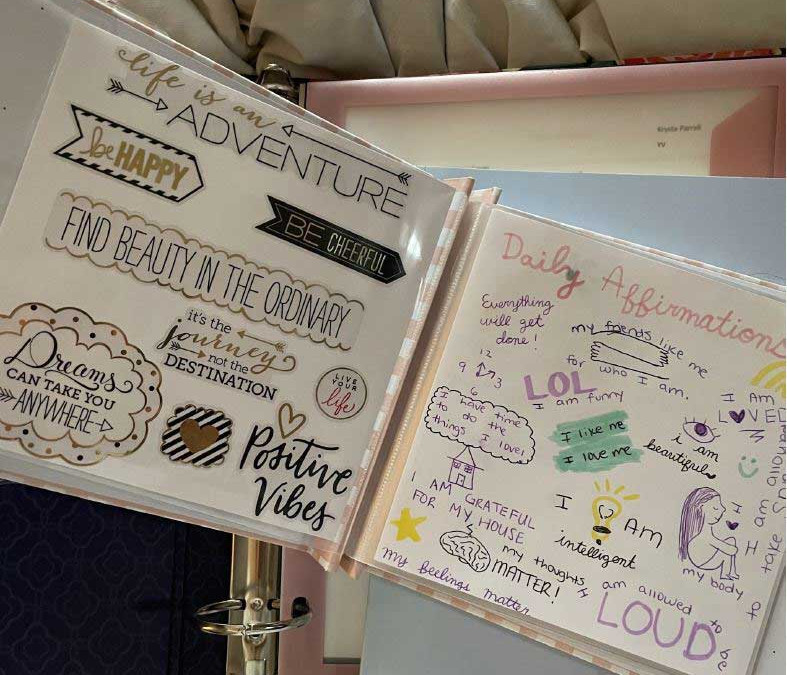 life is an
ADVENTURE
be HAPPY
BE CHEERFUL
FIND BEAUTY IN THE ORDINARY
it's the
journey
not the
DESTINATION
Dreams
CAN TAKE YOU
ANYWHERE
LIVE
YOUR
life
Positive
Vibes
Daily Affirmations
Everything
will get
done!
12
9
3
6
my friends like me
for who I am.
LOL
I am funny
I AM
LOVED
I have time
to do the
things I love!
I like me
I love me
i am
beautiful
I AM GRATEFUL
FOR MY HOUSE
I AM
intelligent
I
my body
my thoughts
MATTER!
my feelings matter
I am allowed to be
LOUD
I am allowed to
take